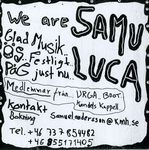 We are SAMU
LUCA
Glad Musik.
OS, Festligt
På G just nu.
Medlemmar från URGA, BOOT,
Kapell
Kontakt
Bokning
Samuel.andersson@kmh.se
Tel. +46 73 7 854982
+46 855171405